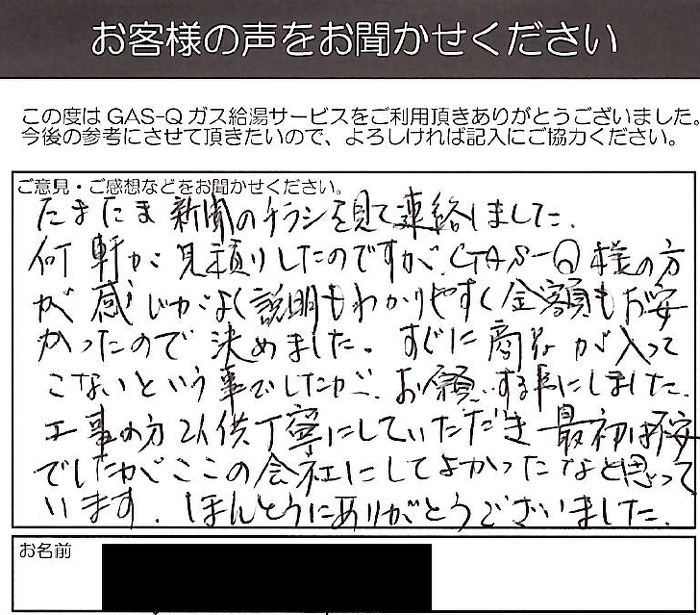 お客様の声をお聞かせください
この度はGAS-Qガス給湯サービスをご利用頂きありがとうございました。
今後の参考にさせて頂きたいので、よろしければ記入にご協力ください。
ご意見・ご感想などをお聞かせください。
たまたま新聞のチラシを見て連絡しました.
何軒か見積りしたのですが、GAS-Q様の方
が感じがよく説明もわかりやすく金額もお安
かったので決めました。すぐに商品が入って
こないという事でしたが、お願いする事にしました.
工事の方2人供丁寧にしていただき最初は不安
でしたがここの会社にしてよかったなと思って
います.ほんとうにありがとうございました.
お名前